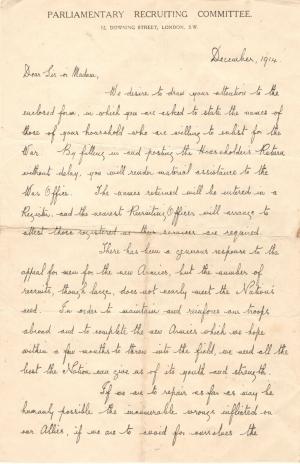 PARLIAMENTARY RECRUITING COMMITTEE.
12, DOWNING STREET, LONDON, S.W.
December, 1914.
Dear Sir or Madam,
We desire to draw your attention to the
enclosed form, in which you are asked to state the names of
those of your household who are willing to enlist for the
War. By filling in and posting the Householder's Return
without delay, you will render material assistance to the
War Office. The names returned will be entered in a
Register, and the nearest Recruiting Officer will arrange to
attest those registered as their services are required.
There has been a generous response to the
appeal for men for the new Armies, but the number of
recruits, though large, does not nearly meet the Nation's
need. In order to maintain and reinforce our troops
abroad and to complete the new Armies which we hope
within a few months to throw into the field, we need all the
best the Nation can give us of its youth and strength.
If we are to repair as far as may be
humanly possible the innumerable wrongs inflicted on
our Allies, if we are to avoid for ourselves the